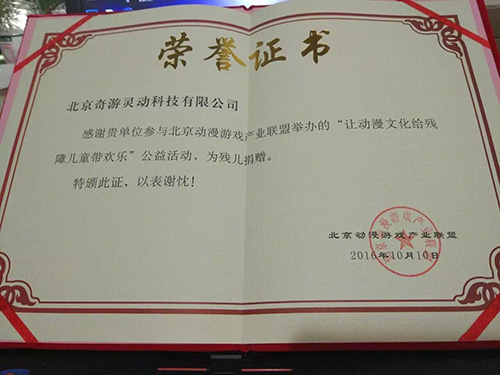 荣誉证书
北京奇游灵动科技有限公司
感谢贵单位参与北京动漫游戏产业联盟举办的“让动漫文化给残
障儿童带欢乐”公益活动，为残儿捐赠。
特颁此证，以表谢忱！
北京动漫游戏产业联盟
北京动漫游戏产业联盟
2016年10月10日